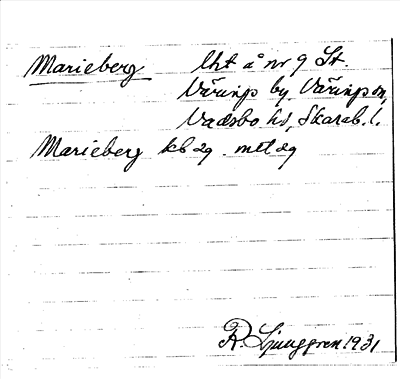 Marieberg lht å nr 9 St.
Väring by, Väring sn,
Vadsbo hd, Skarab. l.
Marieberg kb dg. mtl dg
R. Ljunggren 1931